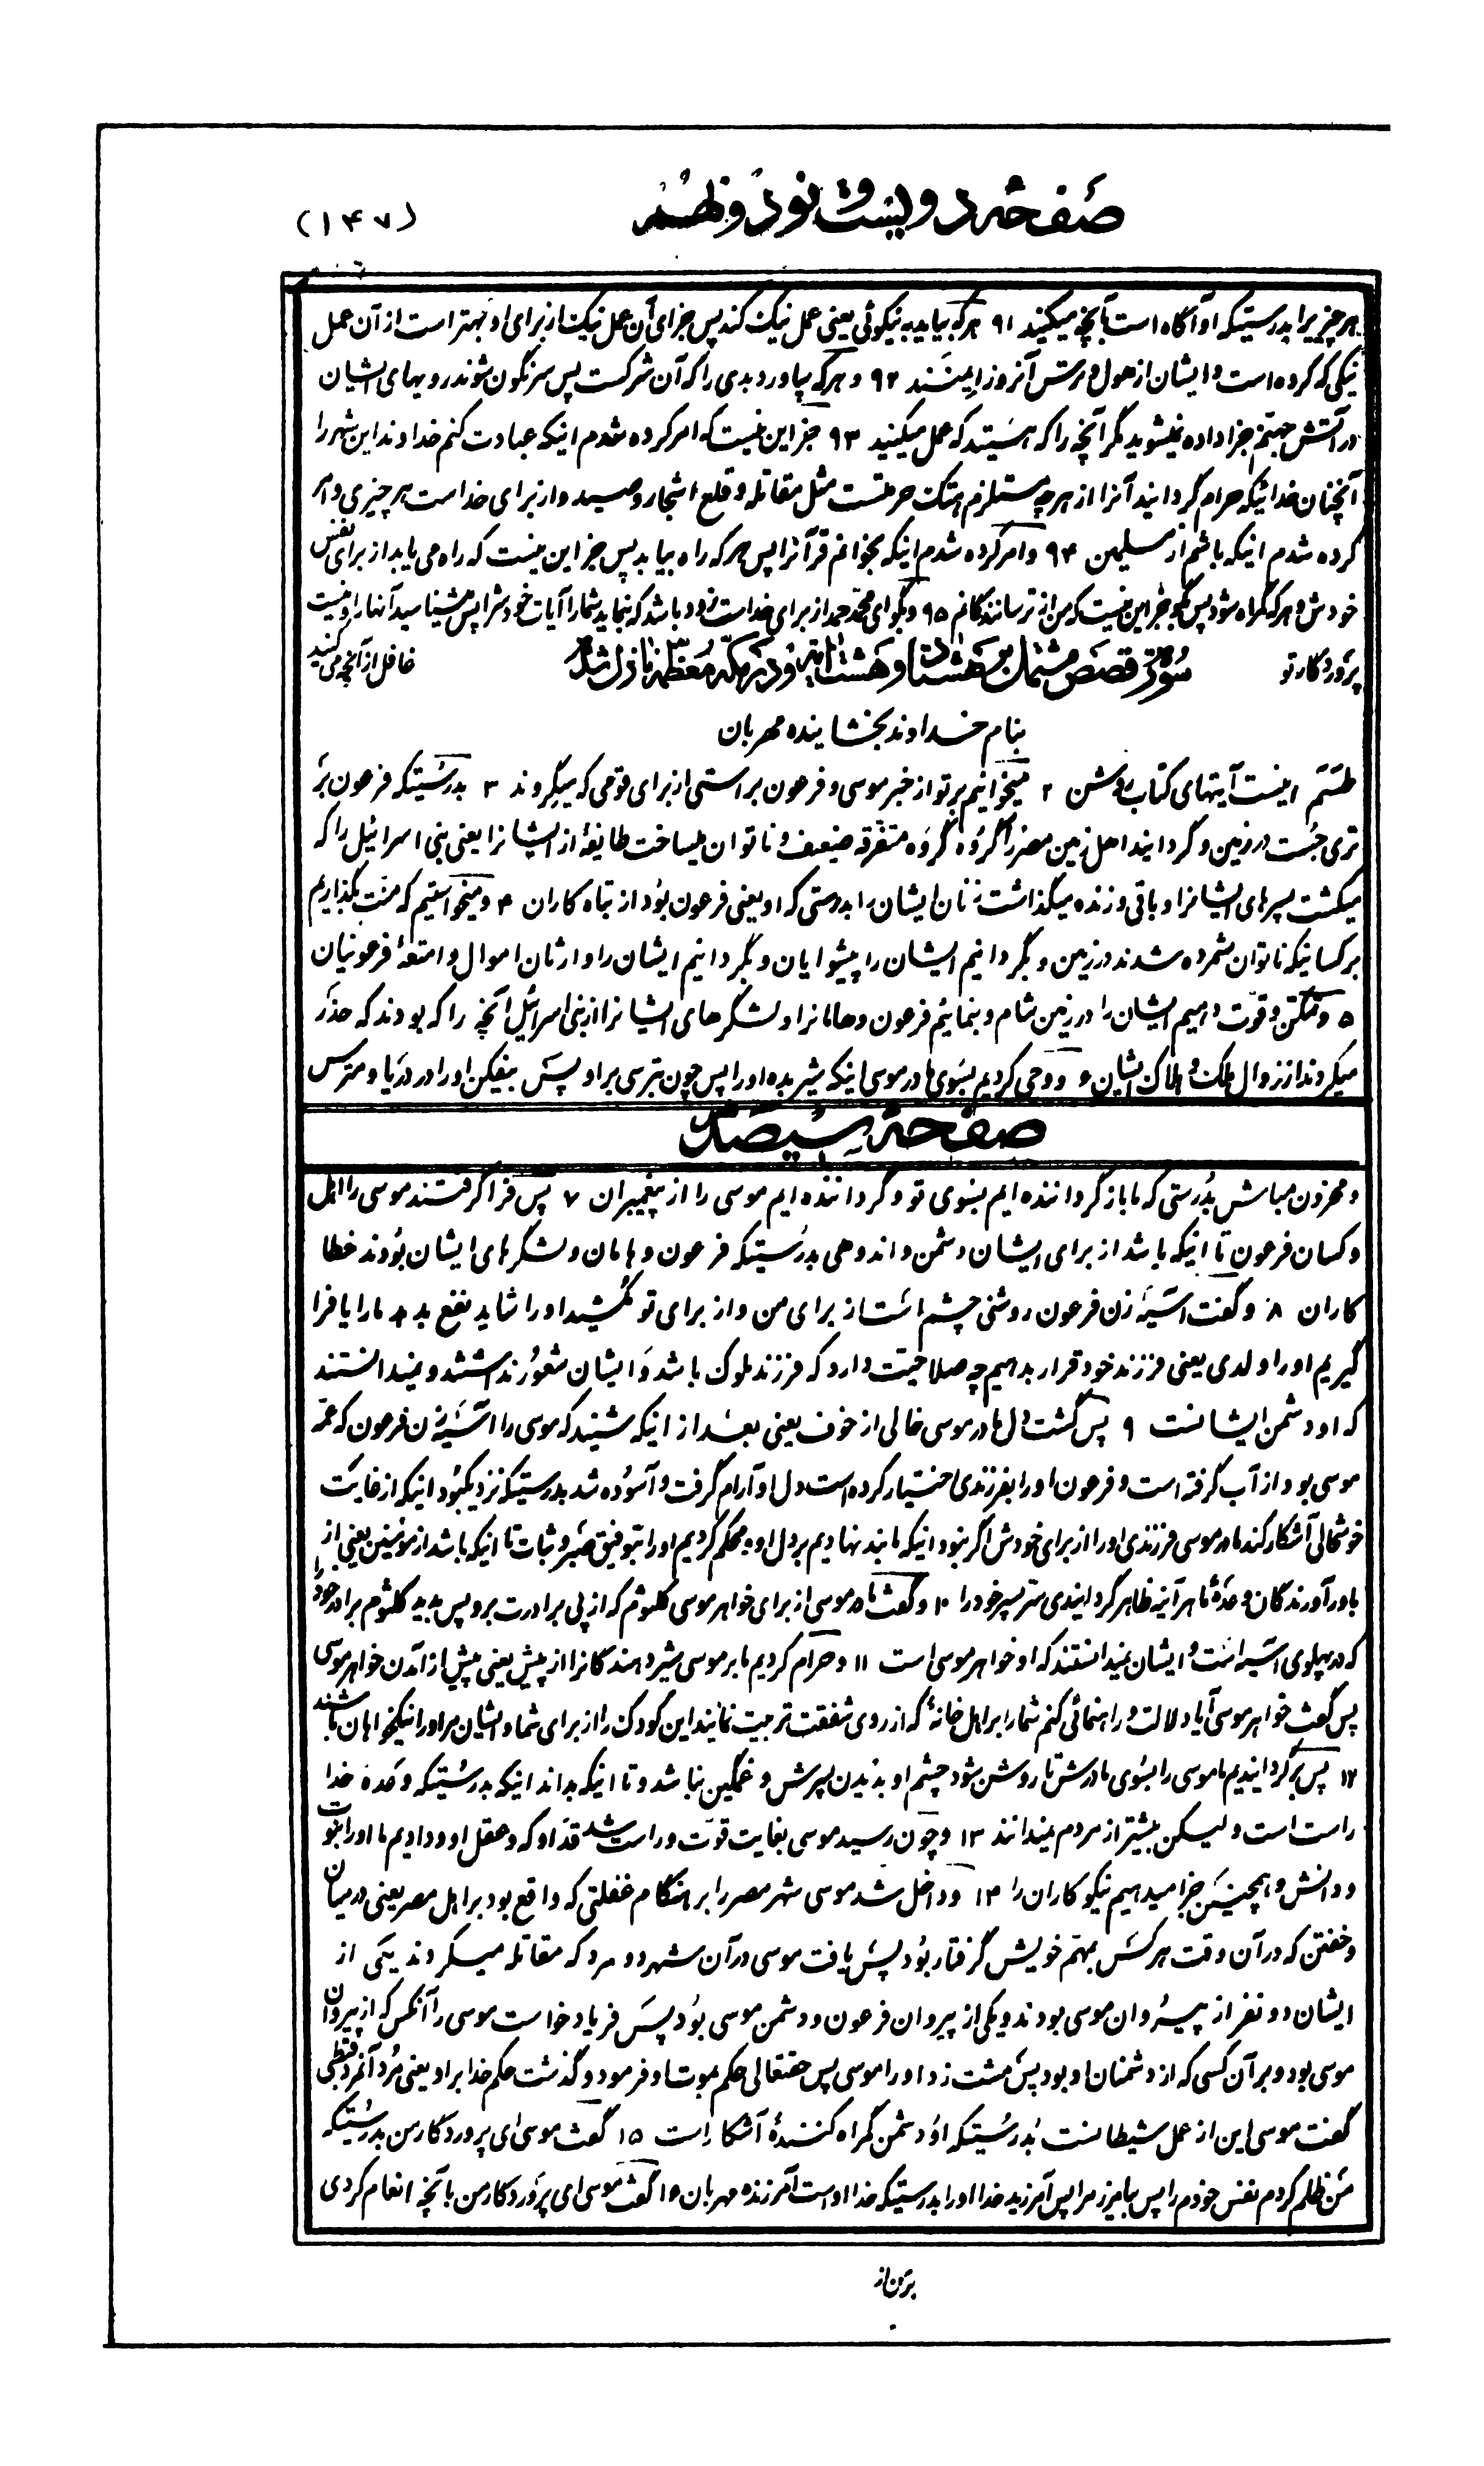 صفحه دویست و نود و نهم
(۱۴۷)
هر چیز یرا بدرستیکه او آگاه است بآنچه میکنید ۹۱ هر که بیاید به نیکوئی یعنی عمل نیک کند پس جزای آن عمل نیک از برای او بهتر است از آن عمل
نیکی که کرده است و ایشان از هول و ترس آنروز ایمنند ۹۲ و هر که بیاورد بدی را که آن شرکست پس سرنگون شوند رویهای ایشان
در آتش جهنم جزا داده نمیشوید مگر آنچه را که هستید که عمل میکنید ۹۳ جز این نیست که امر کرده شدم اینکه عبادت کنم خداوند این شهر را
آنچنان خدائیکه حرام گردانید آنرا از هر چه مستلزم هتک حرمتست مثل مقاتله و قلع اشجار و صید و از برای خداست هر چیزی و امر
کرده شدم اینکه باشم از مسلمین ۹۴ و امر کرده شدم اینکه بخوانم قرآنرا پس هر که راه بیابد پس جز این نیست که راه می یابد از برای نفس
خودش و هر که گمراه شود پس بگو جز این نیست که من از ترسانندگانم ۹۵ و بگو ای محمد حمد از برای خداست زود باشد که بنماید شما را آیات خودش را پس میشناسید آنها را و نیست
پروردگار تو
غافل از آنچه می کنید
سورة قصص مشتمل بر هشتاد و هشت آیه و در مکه معظمه نازل شده
بنام خداوند بخشاینده مهربان
طسم اینست آیتهای کتاب روشن ۲ میخوانیم بر تو از خبر موسی و فرعون براستی از برای قومی که میگروند ۳ بدرستیکه فرعون بر
تری جست در زمین و گردانید اهل زمین مصر را گروه گروه متفرقه ضعیف و ناتوان میساخت طایفهٔ از ایشانرا یعنی بنی اسرائیل را که
میکشت پسرهای ایشانرا و باقی و زنده میگذاشت زنان ایشان را بدرستی که او یعنی فرعون بود از تباه کاران ۴ و میخواستیم که منت بگذاریم
بر کسانیکه ناتوان شمرده شدند در زمین و بگردانیم ایشان را پیشوایان و بگردانیم ایشان را وارثان اموال و امتعهٔ فرعونیان
۵ و تمکن و قوت دهیم ایشان را در زمین شام و بنمائیم فرعون و هامانرا و لشگرهای ایشانرا از بنی اسرائیل آنچه را که بودند که حذر
میکردند از زوال ملک و هلاک ایشان ۶ و وحی کردیم بسوی مادر موسی اینکه شیر بده او را پس چون بترسی بر او پس بیفکن او را در دریا و مترس
صفحه سیصد
و محزون مباش بدرستی که ما باز گرداننده ایم بسوی تو و گرداننده ایم موسی را از پیغمبران ۷ پس فرا گرفتند موسی را اهل
و کسان فرعون تا اینکه باشد از برای ایشان دشمن و اندوهی بدرستیکه فرعون و هامان و لشگرهای ایشان بودند خطا
کاران ۸ و گفت آسیه زن فرعون روشنی چشم است از برای من و از برای تو نکشید او را شاید نفع بدهد ما را یا فرا
گیریم او را ولدی یعنی فرزند خود قرار بدهیم چه صلاحیت دارد که فرزند ملوک باشد و ایشان شعور نداشتند و نمیدانستند
که او دشمن ایشانست ۹ پس گشت دل مادر موسی خالی از خوف یعنی بعد از اینکه شنید که موسی را آسیه زن فرعون که عمه
موسی بود از آب گرفته است و فرعون او را بفرزندی اختیار کرده است دل او آرام گرفت و آسوده شد بدرستیکه نزدیک بود اینکه از غایت
خوشحالی آشکار کند مادر موسی فرزندی او را از برای خودش اگر نبود اینکه ما بند نهادیم بر دل او و محکم کردیم او را بتوفیق صبر و ثبات تا اینکه باشد از مؤمنین یعنی از
باور آورندگان وعدهٔ ما هر آینه ظاهر گردانیدی سر پسر خود را ۱۰ و گفت مادر موسی از برای خواهر موسی کلثوم که از پی برادرت برو پس بدید کلثوم برادر خود را
که در پهلوی آسیه است و ایشان نمیدانستند که او خواهر موسی است ۱۱ و حرام کردیم ما بر موسی شیر دهندگانرا از پیش یعنی پیش از آمدن خواهر موسی
پس گفت خواهر موسی آیا دلالت و راهنمائی کنم شما را بر اهل خانهٔ که از روی شفقت تربیت نمایند این کودک را از برای شما و ایشان مر او را نیکخواهان باشند
۱۲ پس برگردانیدیم ما موسی را بسوی مادرش تا روشن شود چشم او بدیدن پسرش و غمگین نباشد و تا اینکه بداند اینکه بدرستیکه وعدهٔ خدا
راست است و لیکن بیشتر از مردم نمیدانند ۱۳ و چون رسید موسی بغایت قوت و راست شد قد او که و عقل او دادیم ما او را نبوت
و دانش و همچنین جزا میدهیم نیکوکاران را ۱۴ و داخل شد موسی شهر مصر را بر هنگام غفلتی که واقع بود بر اهل مصر یعنی در میان
و خفتن که در آن وقت هر کس بمهم خویش گرفتار بود پس یافت موسی در آن شهر دو مرد که مقاتله میکردند یکی از
ایشان دو نفر از پیروان موسی بودند و یکی از پیروان فرعون و دشمن موسی بود پس فریاد خواست موسی را آنکس که از پیروان
موسی بود و بر آن کسی که از دشمنان او بود پس مشت زد او را موسی پس حقتعالی حکم بموت او فرمود و گذشت حکم خدا بر او یعنی مرد آنمرد قبطی
گفت موسی این از عمل شیطانست بدرستیکه او دشمن گمراه کنندهٔ آشکار است ۱۵ گفت موسی ای پروردگار من بدرستیکه
من ظلم کردم نفس خودم را پس بیامرز مرا پس آمرزید خدا او را بدرستیکه خدا او است آمرزنده مهربان ۱۶ گفت موسی ای پروردگار من بآنچه انعام کردی
بر من از